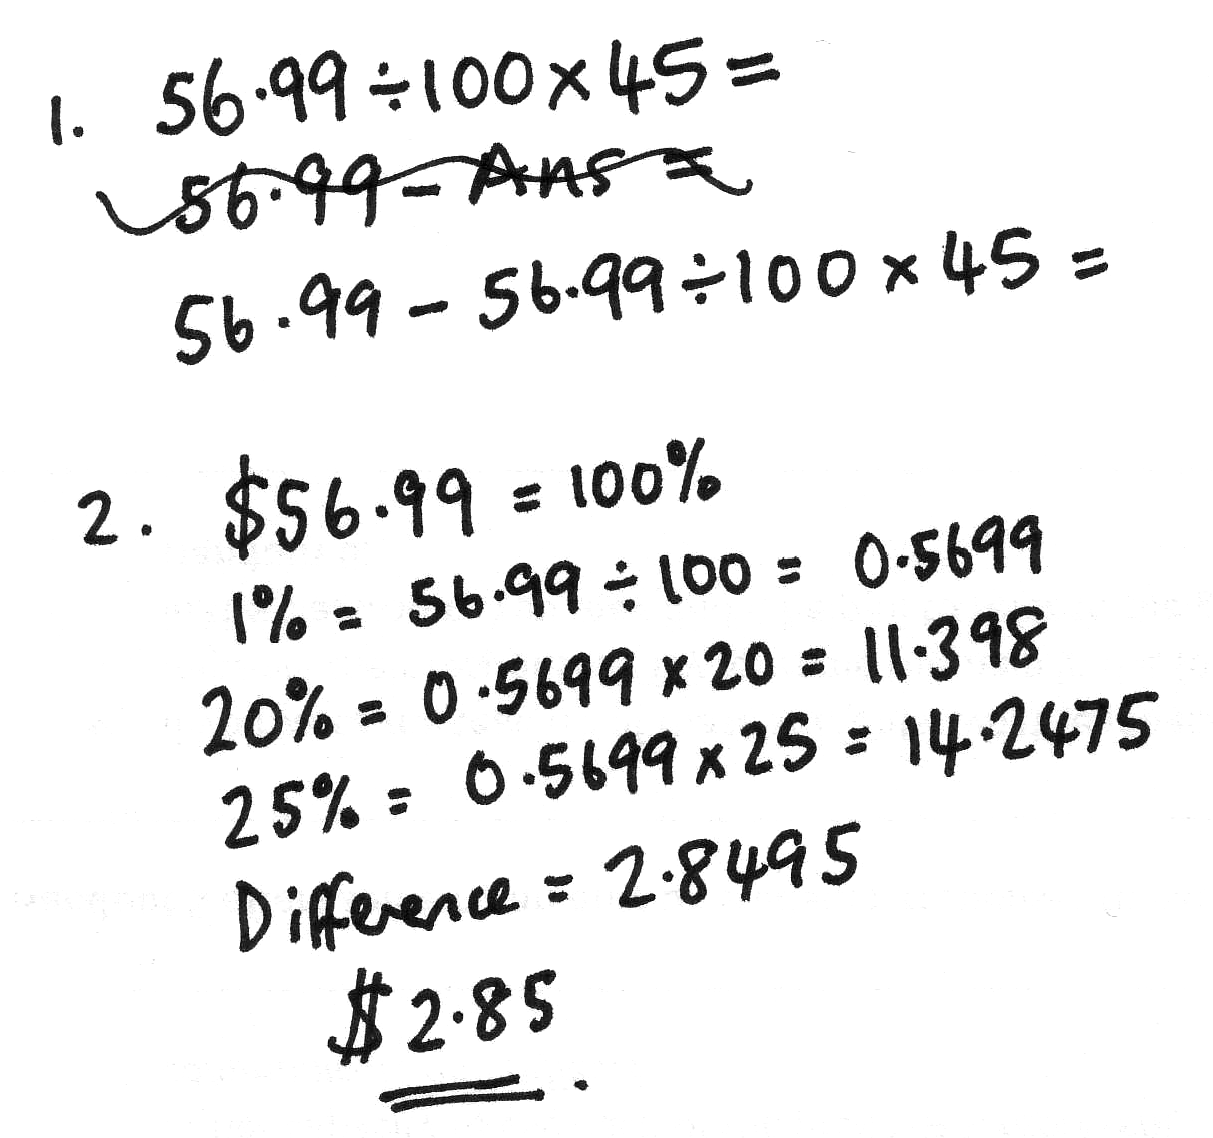 1. 56.99÷100×45=
56.99-Ans=
56.99-56.99÷100×45=
2. $56.99=100%
1%=56.99÷100=0.5699
20%=0.5699×20=11.398
25%=0.5699×25=14.2475
Difference=2.8495
$2.85.